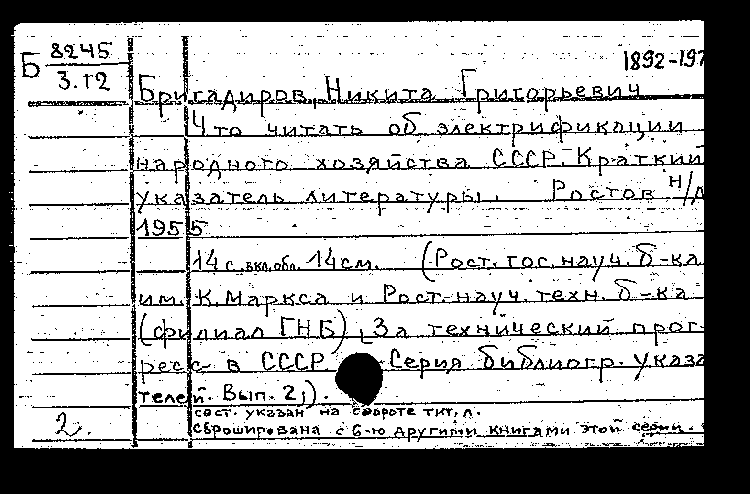 Б 8245
3.12
1892-197
Бригадиров, Никита Григорьевич
Что читать об электрификации
народного хозяйства СССР. Краткий
указатель литературы. Ростов н/Д
1955
14 с. вкл. обл. 14 см. (Рост. гос. науч. б-ка
им. К. Маркса и Рост. науч. техн. б-ка
(филиал ГНБ). За технический прог-
ресс в СССР. Серия библиогр. указа
телей. Вып. 2).
сост. указан на обороте тит. л.
сброширована с 6-ю другими книгами этой серии.
2.